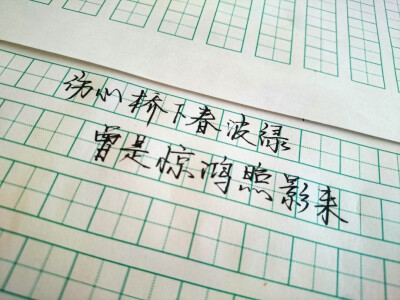 伤心桥下春波绿
曾是惊鸿照影来